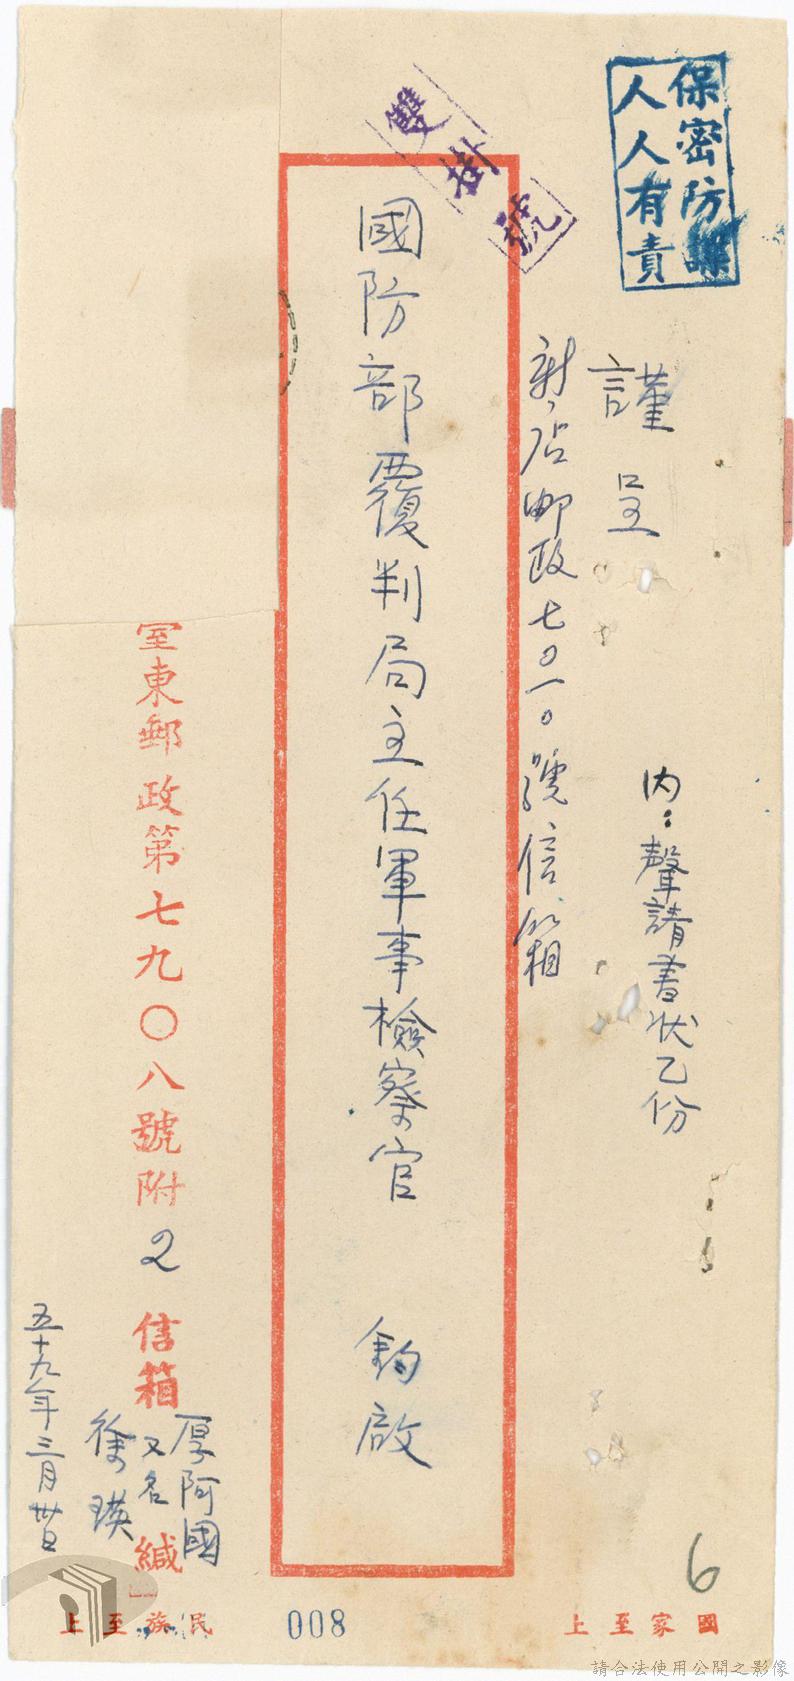 保密防諜
人人有責
雙掛號
謹呈
內：聲請書狀乙份
新店郵政七〇一〇號信箱
國防部覆判局主任軍事檢察官 鈞啟
臺東郵政第七九〇八號附2信箱
厚阿國
又名
徐瑛
緘
五十九年三月卅日
國家至上
008
民族至上
6
請合法使用公開之影像